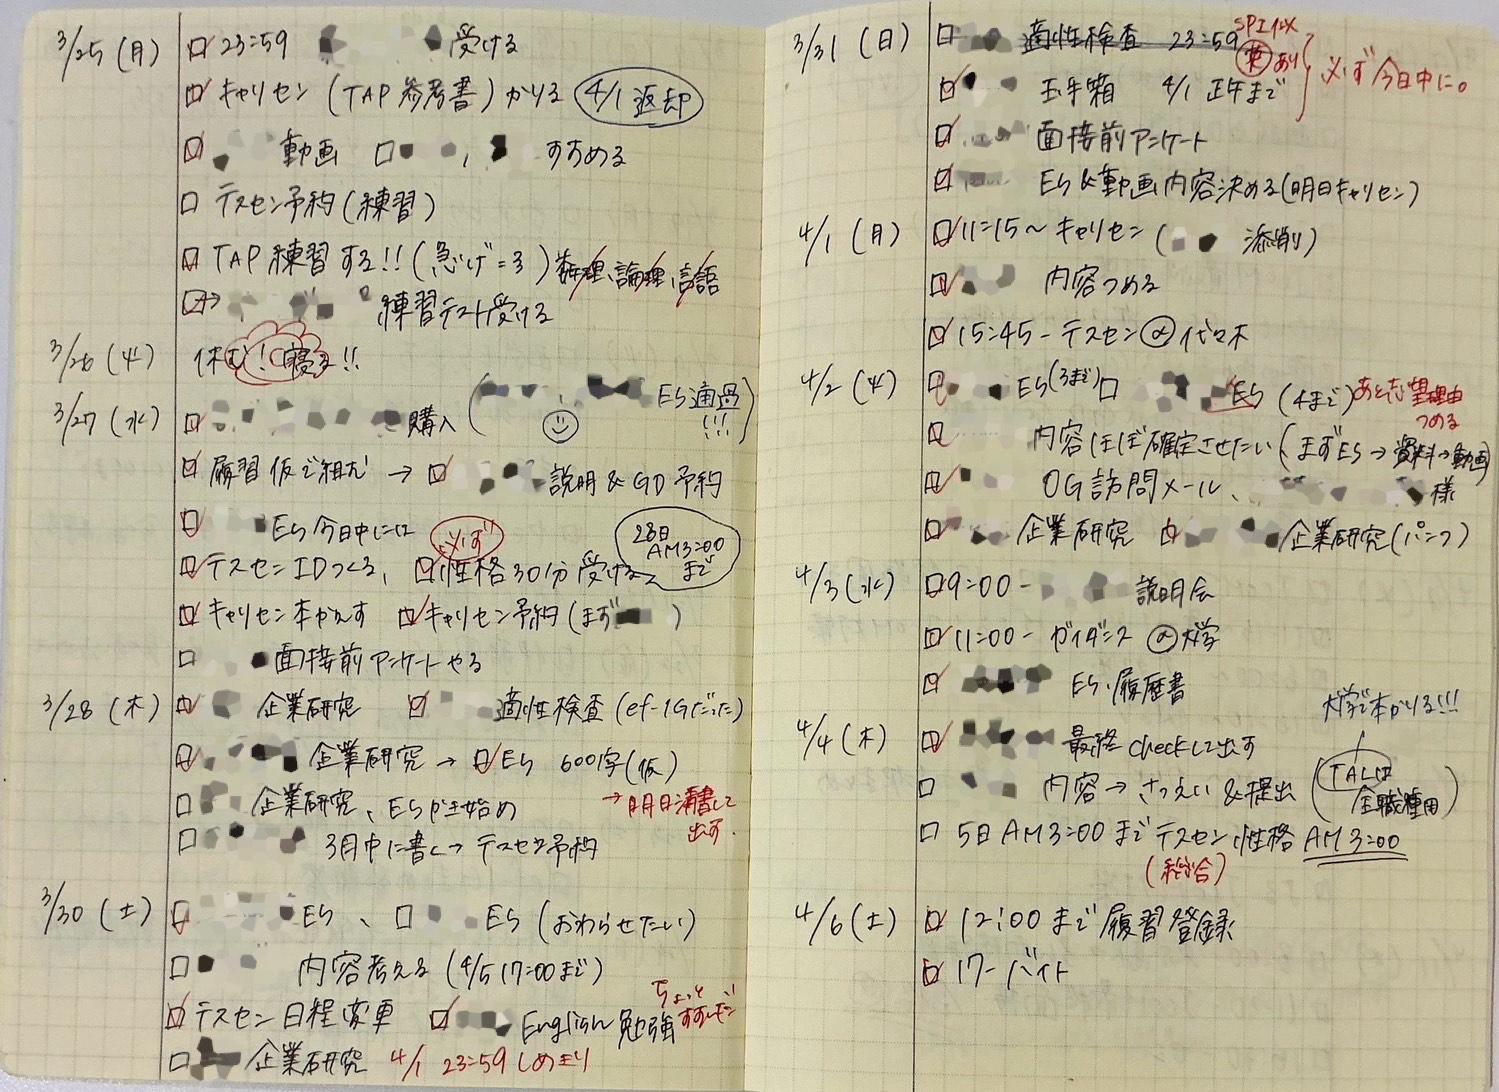 3/25 (月) 23:59 受ける
キャリセン (TAP 参考書) かりる 4/1 返却
動画 、 すすめる
テスセン予約 (練習)
TAP 練習する!! (急げ=3) 数理、論理、言語
→ 練習テスト受ける
3/26 (火) 休む! (寝る!!
3/27 (水) 購入 ( ES通過!!!)
履習仮で組む → 説明 & GD 予約
ES 今日中に 必ず
28日 AM3:00 まで
テスセンIDつくる、 性格30分 受ける
キャリセン本かえす キャリセン予約 (まず )
面接前アンケートやる
3/28 (木) 企業研究 適性検査 (ef-1Gだった)
企業研究 → ES 600字 (仮)
企業研究、ESかき始め → 明日清書して出す.
3月中に書く→ テスセン予約
3/30 (土) ES 、 ES (おわらせたい)
内容考える (4/5 17:00まで)
テスセン 日程変更 English 勉強 ちょっとすすんだ!
企業研究 4/1 23:59 しめきり
3/31 (日) 適性検査 23:59 SPI 英あり
玉手箱 4/1 正午まで 必ず今日中に。
面接前アンケート
ES & 動画内容決める (明日キャリセン)
4/1 (月) 11:15〜 キャリセン ( 添削)
内容つめる
15:45- テスセン @代々木
4/2 (火) ES (3まで) ES (4まで) あと志望理由つめる
内容ほぼ確定させたい (まずES→資料→動画)
OG訪問メール、 様
企業研究 企業研究 (パンフ)
4/3 (水) 9:00- 説明会
11:00- ガイダンス @大学
ES、履歴書
大学で本かりる!!!
4/4 (木) 最終checkして出す
内容→ さつえい & 提出 (TALは 全職種用)
5日 AM3:00 まで テスセン 性格 AM3:00
(総合)
4/6 (土) 12:00 まで 履習登録
17- バイト